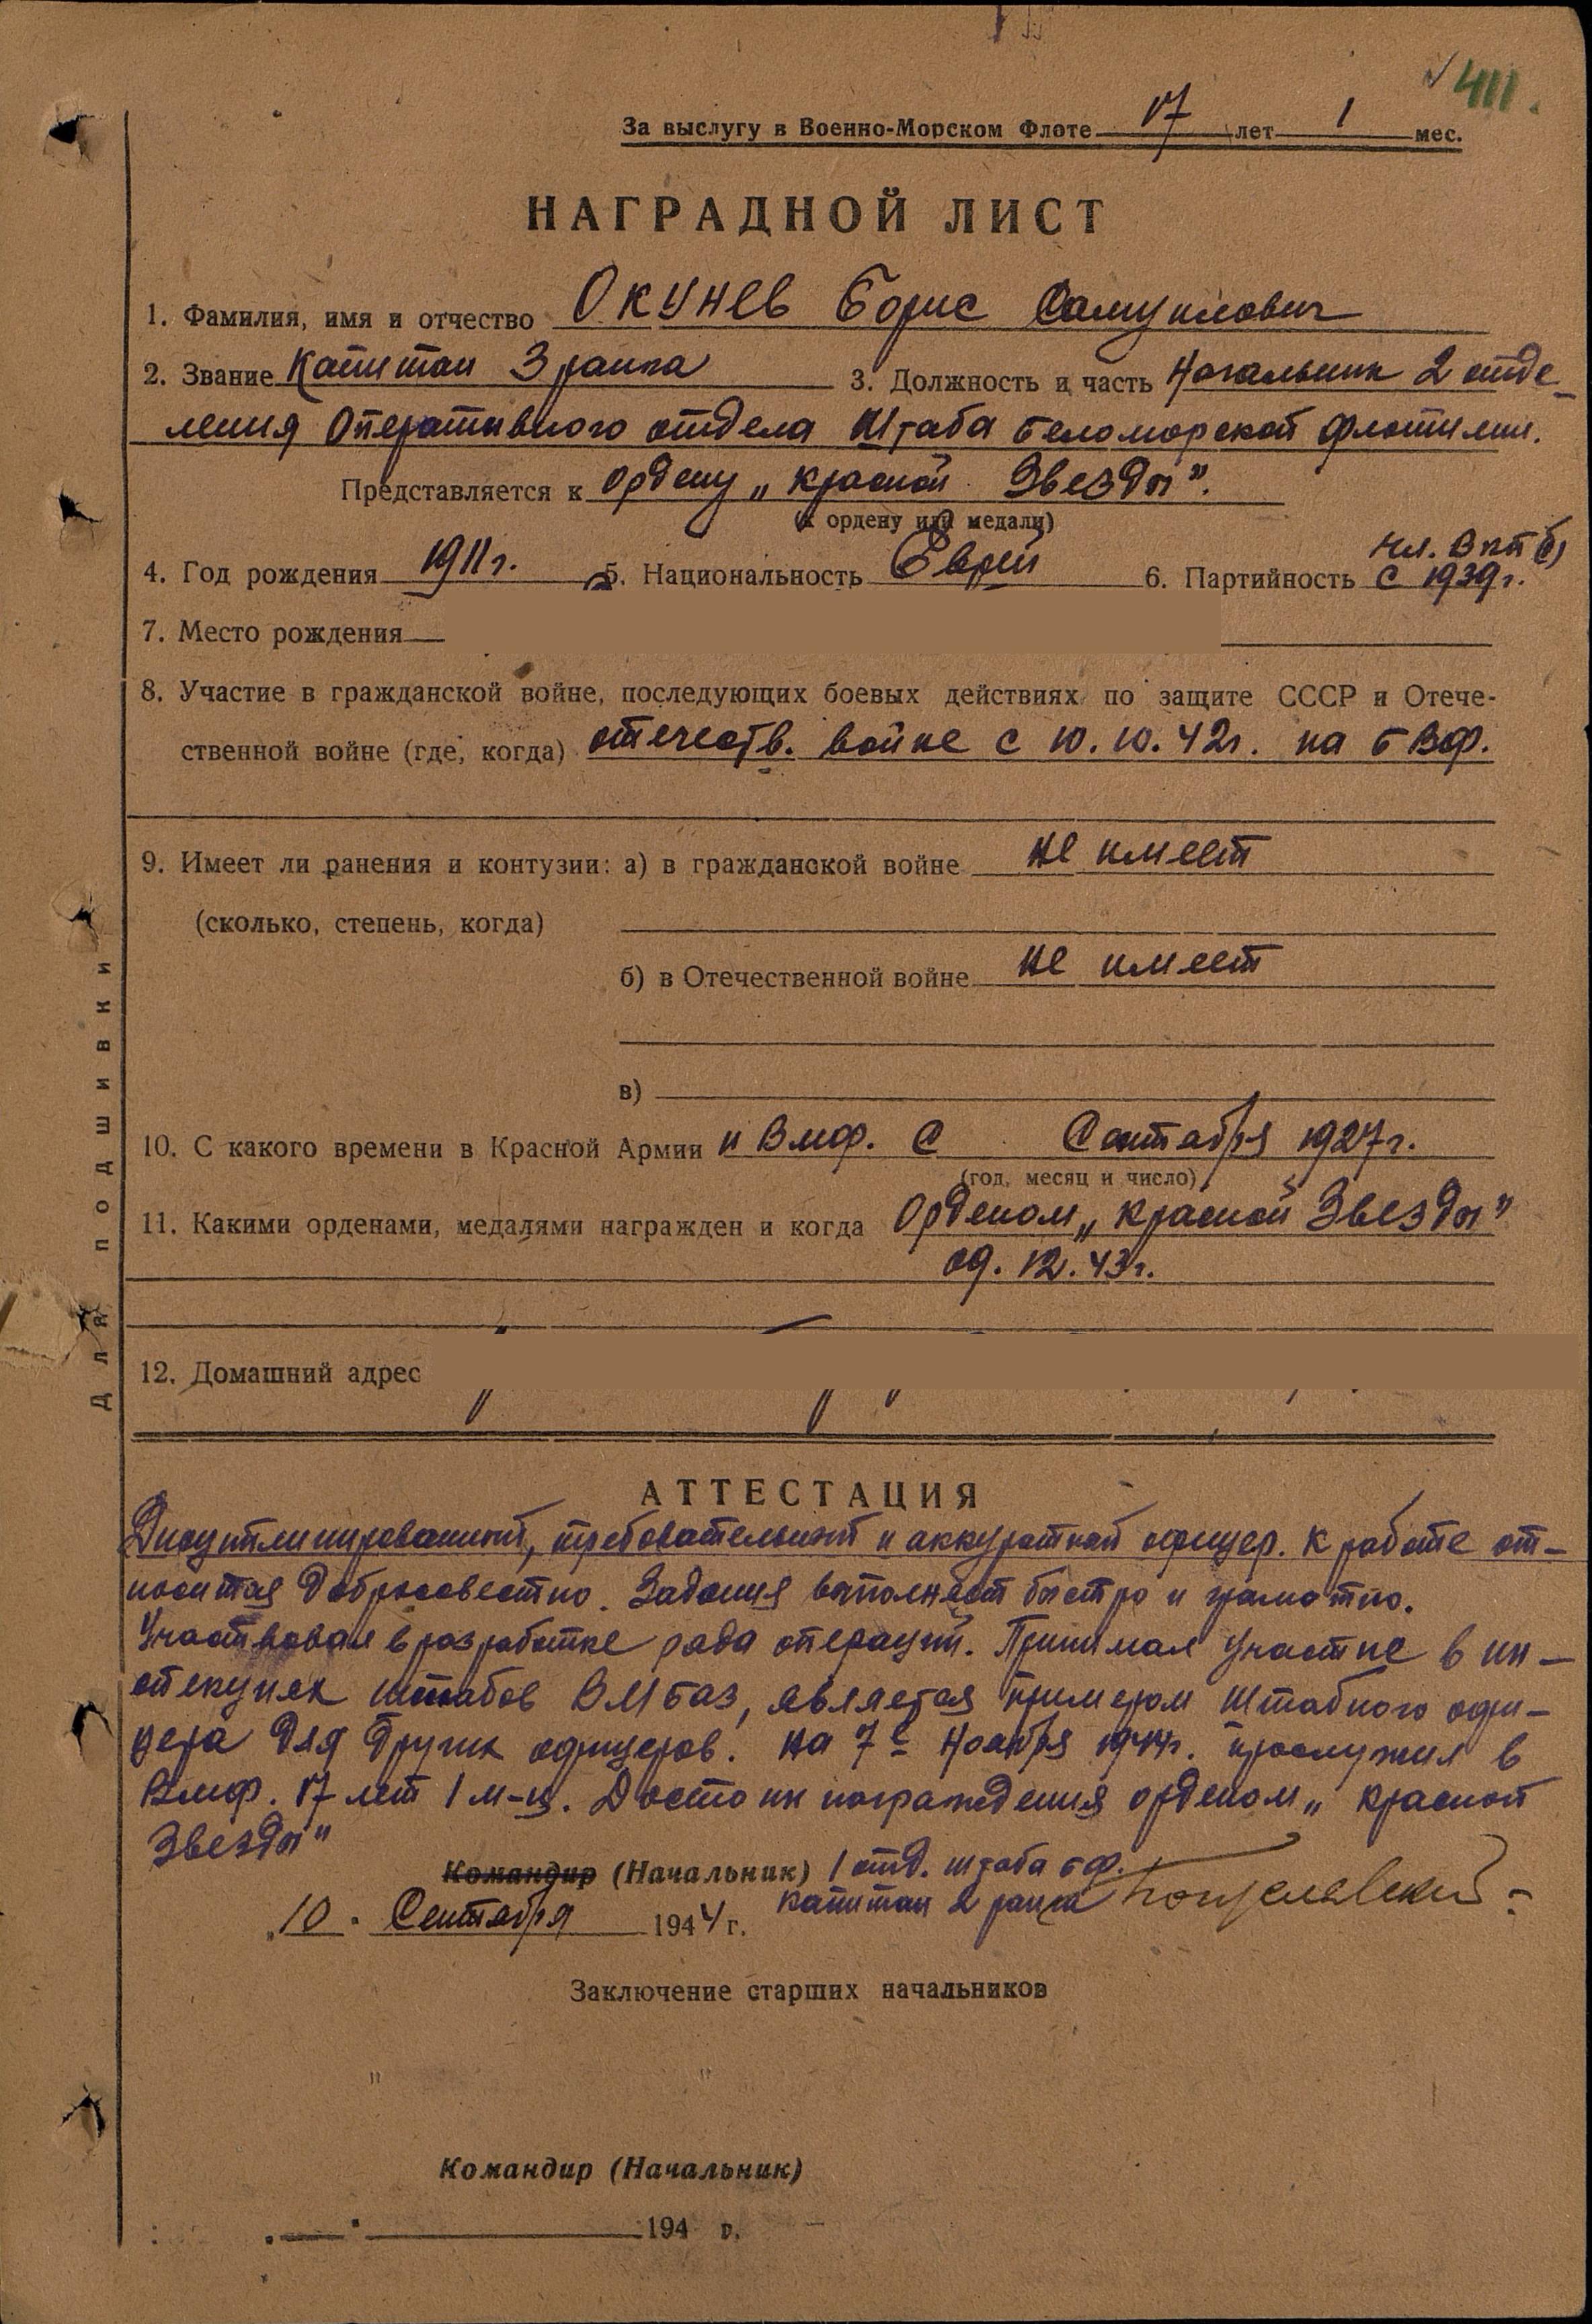 411.
За выслугу в Военно-Морском Флоте 17 лет 1 мес.
НАГРАДНОЙ ЛИСТ
1. Фамилия, имя и отчество Окунев Борис Самуилович
2. Звание Капитан 3 ранга 3. Должность и часть Начальник 2 отде-
ления Оперативного отдела Штаба Беломорской флотилии.
Представляется к ордену „Красной Звезды".
(к ордену или медали)
чл. ВКП(б)
4. Год рождения 1911г. 5. Национальность Еврей 6. Партийность с 1939г.
7. Место рождения
8. Участие в гражданской войне, последующих боевых действиях по защите СССР и Отече-
ственной войне (где, когда) отечеств. войне с 10.10.42г. на БВФ.
9. Имеет ли ранения и контузии: а) в гражданской войне не имеет
(сколько, степень, когда)
б) в Отечественной войне не имеет
в)
10. С какого времени в Красной Армии и ВМФ. с Сентября 1927г.
(год, месяц и число)
11. Какими орденами, медалями награжден и когда Орденом „Красной Звезды"
09.12.43г.
12. Домашний адрес
Для подшивки
АТТЕСТАЦИЯ
Дисциплинированный, требовательный и аккуратный офицер. К работе от-
носится добросовестно. Задания выполняет быстро и грамотно.
Участвовал в разработке ряда операций. Принимал участие в ин-
спекциях штабов ВМбаз, является примером штабного офи-
цера для других офицеров. На 7е Ноября 1944г. прослужил в
ВМФ. 17 лет 1 м-ц. Достоин награждения орденом „Красной
Звезды"
Командир (Начальник) 1 отд. штаба БФ.
капитан 2 ранга
„10" Сентября 1944г.
Заключение старших начальников
Командир (Начальник)
194 г.